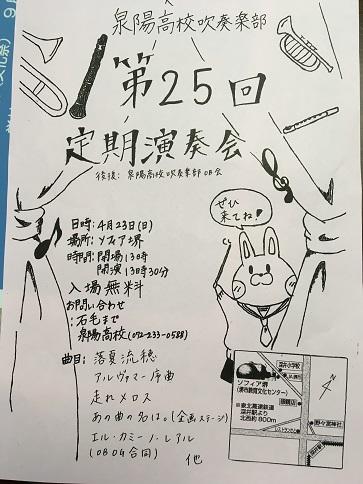 泉陽高校吹奏楽部
第25回
定期演奏会
後援：泉陽高校吹奏楽部OB会
ぜひ
来てね！
日時：4月23日(日)
場所：ソフィア堺
時間：開場13時
開演13時30分
入場無料
お問い合わせ
：石毛まで
泉陽高校(072-233-0588)
曲目：落夏流穂
アルヴァマー序曲
走れメロス
あの曲の名は。(企画ステージ)
エル・カミーノ・レアル
(OBOG合同)
他
深井小学校
ソフィア堺
(堺市教育文化センター)
※泉北高速鉄道
深井駅より
北西約800m
野々宮神社